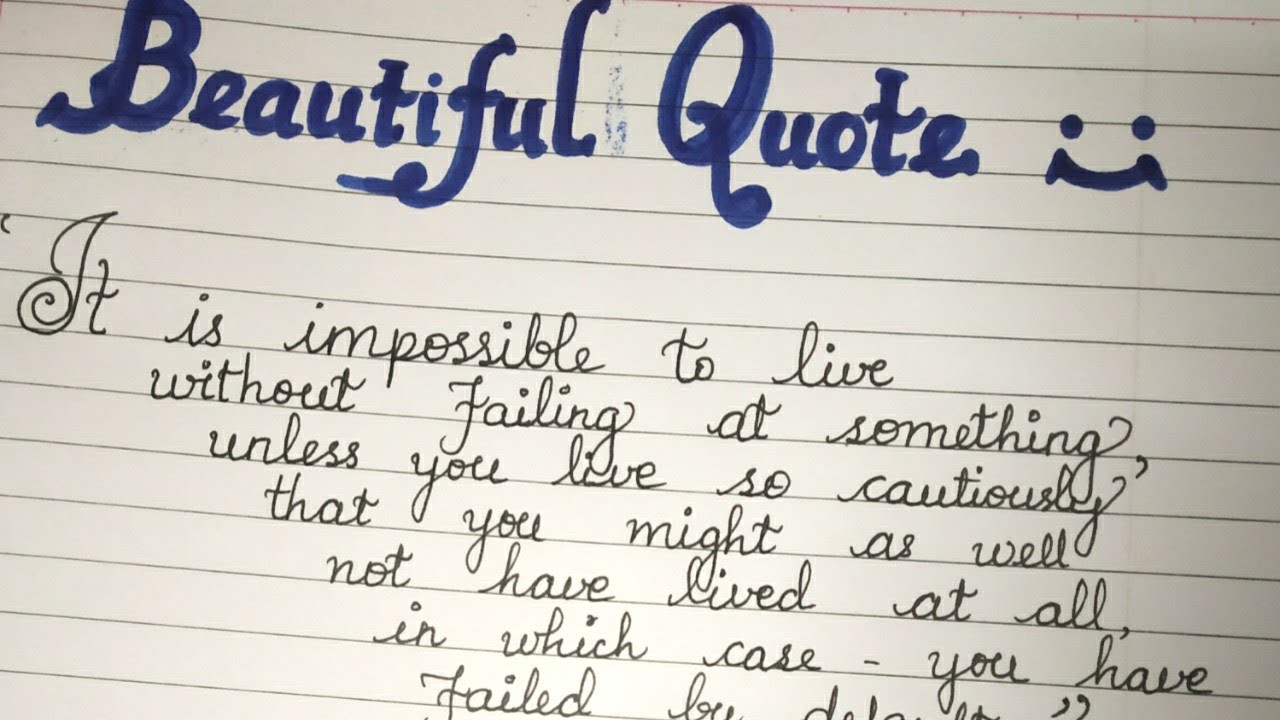 Beautiful Quote
"It is impossible to live
without failing at something,
unless you live so cautiously
that you might as well
not have lived at all,
in which case - you have
failed by default"